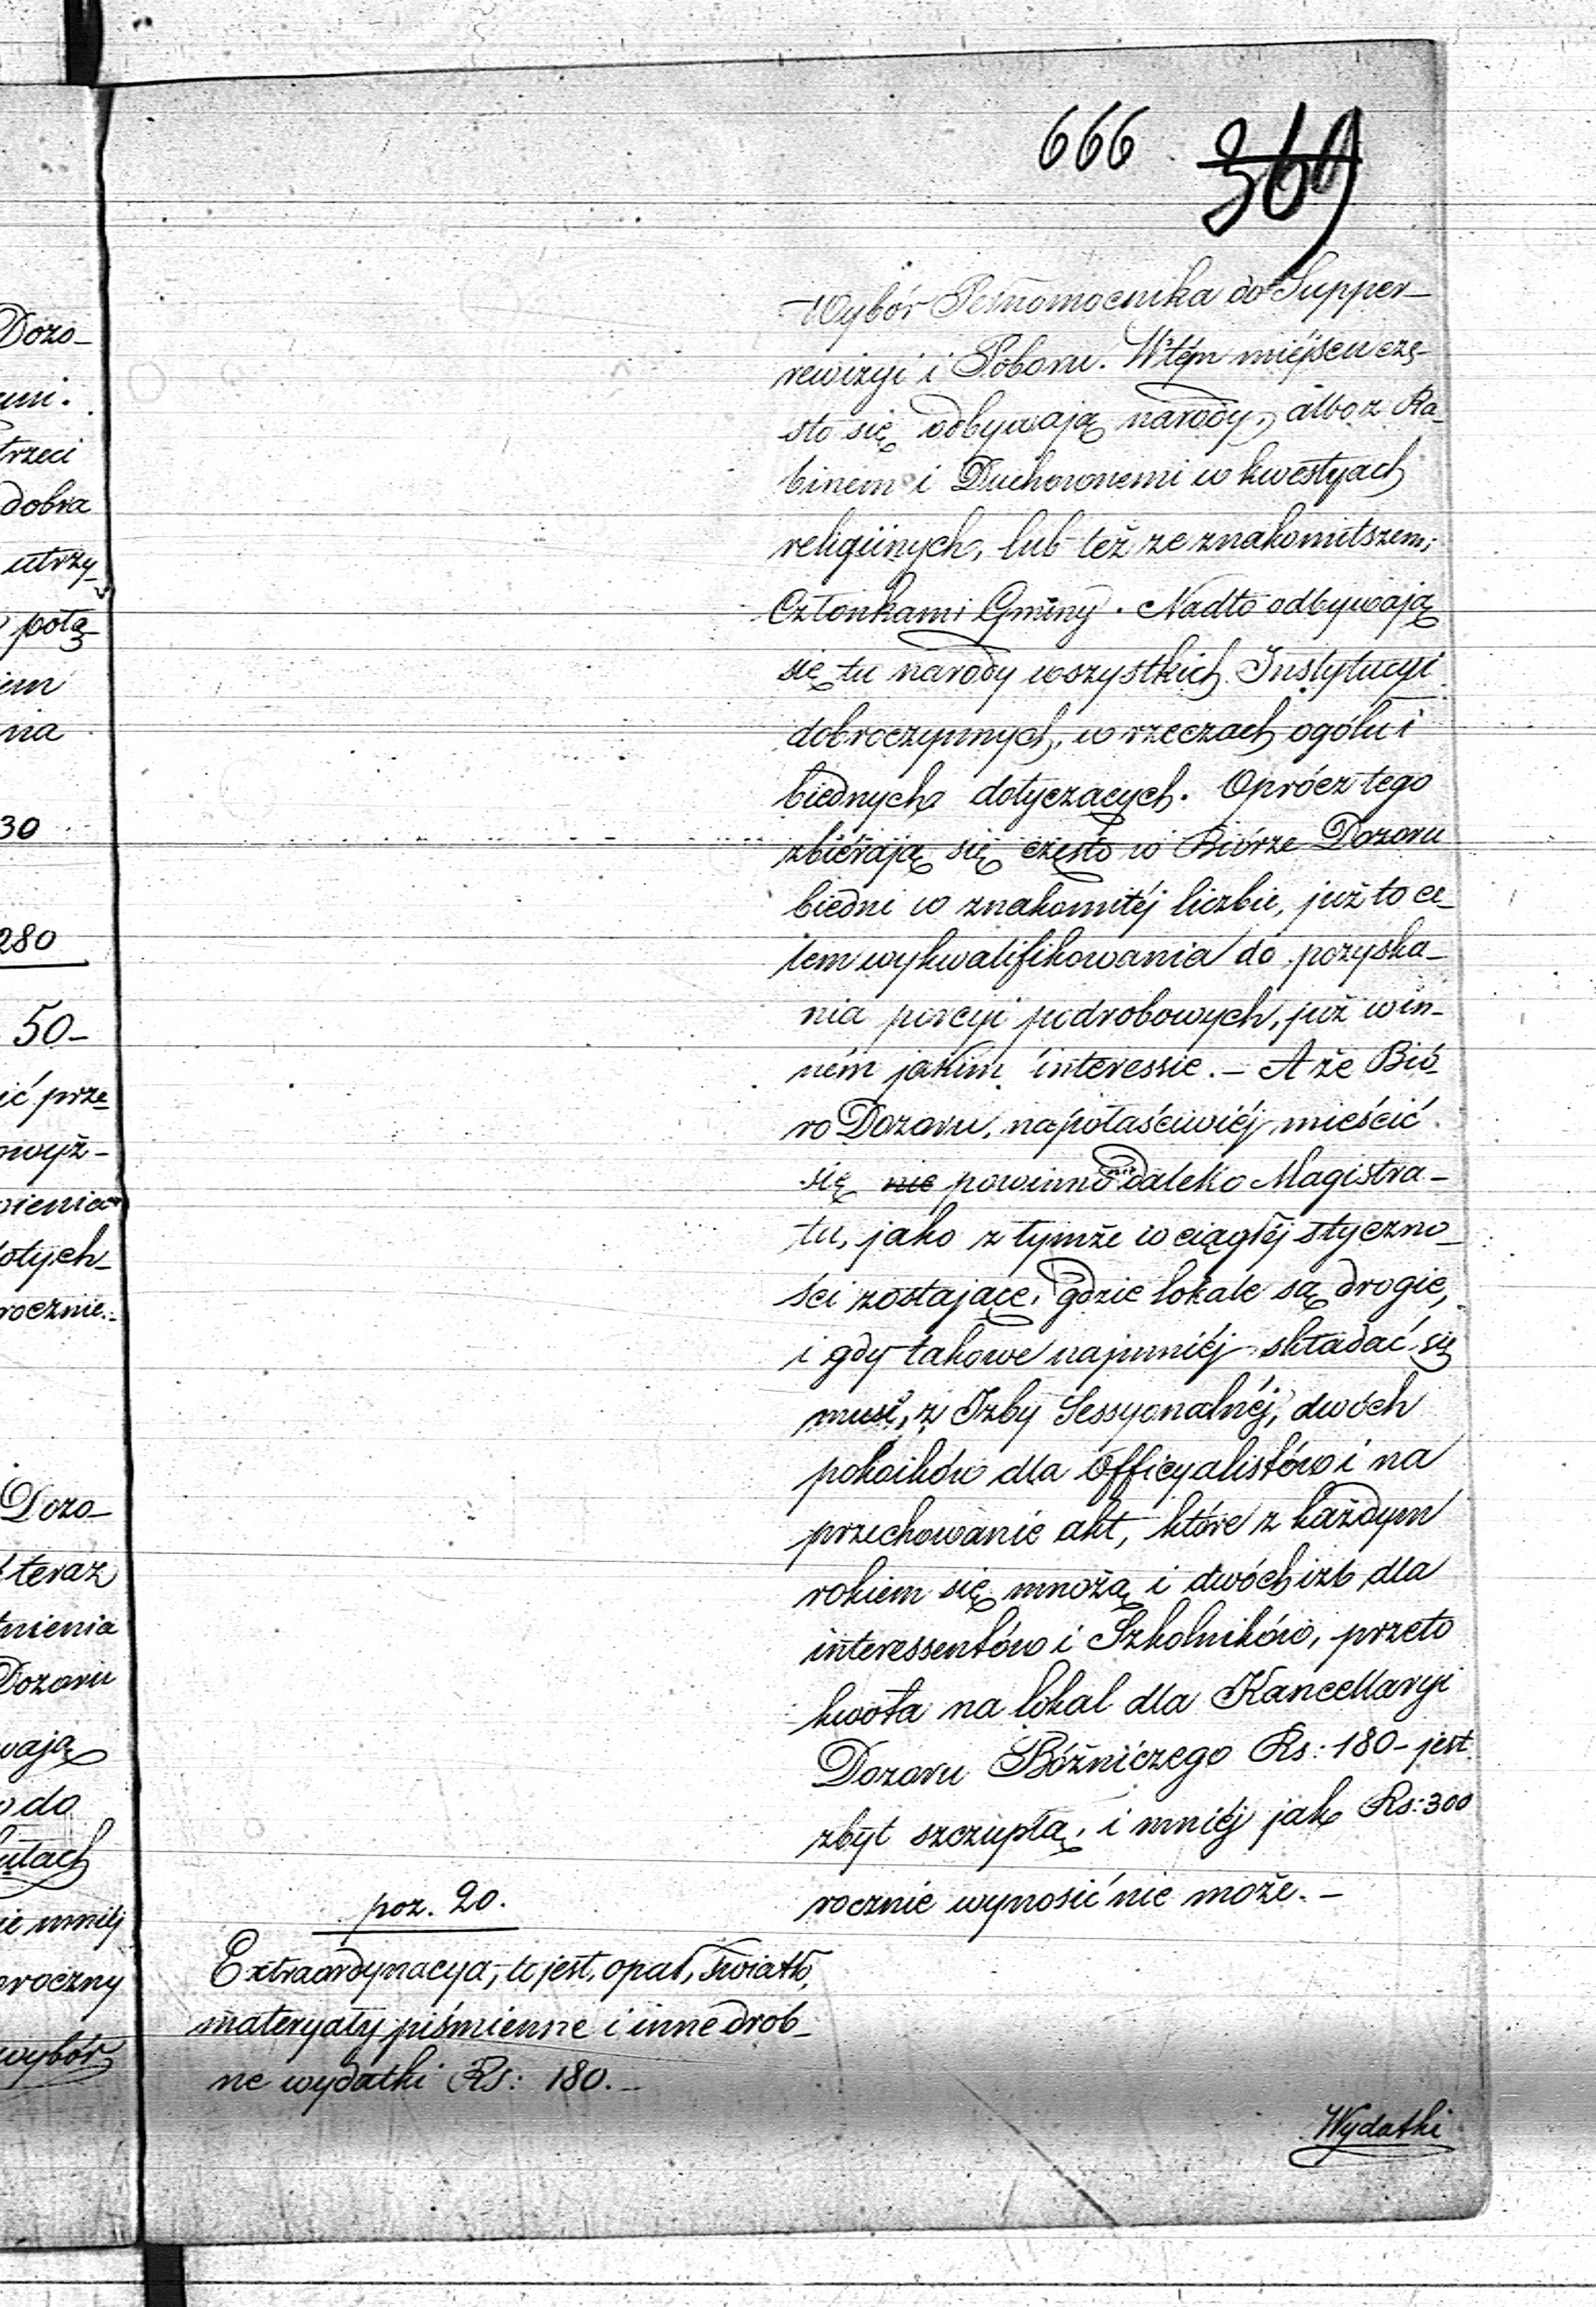 666 369
Dozo-
uni.
trzeci
dobra
utrzy-
potą-
iem
nia
30
280
50-
ić prze
owyż-
pienia
dotych-
rocznie.
Dozo-
teraz
nienia
Dozoru
wają
do
utach
ie mniéj
oroczny
wybór
Wybór Pełnomocnika do Supper-
rewizyi i Poboru. W tém miéjscu czę-
sto się odbywają narody, albo z Ra-
binem i Duchownemi w kwestyach
religiinych, lub też ze znakomitszemi
Członkami Gminy. Nadto odbywają
się tu narody wszystkich Instytucyi
dobroczynnych, w rzeczach ogółu i
biednych dotyczacych. Oprócz tego
zbiérają się często w Biórze Dozoru
biedni w znakomitéj liczbie, już to ce-
lem wykwalifikowania do pozyska-
nia porcyi podrobowych, już w in-
ném jakim interessie. - A że Bió-
ro Dozoru, najwłaściwiéj mieścić
się nie powinno nie daleko Magistra-
tu, jako z tymże w ciągłéj styczno-
ści zostające, gdzie lokale są drogie,
i gdy takowe najmniéj składać się
musi, z Izby Sessyonalnéj, dwóch
pokoików dla Officyalistów i na
przechowanie akt, które z każdym
rokiem się mnożą i dwóch izb dla
interessentów i Szkolników, przeto
kwota na lokal dla Kancellaryi
Dozoru Bóżniczego Rs: 180 - jest
zbyt szczupłą, i mniéj jak Rs: 300
rocznie wynosić nie może. -
poz. 20.
Extraordynacya, to jest, opał, światło,
materyały piśmienne i inne drob-
ne wydatki Rs: 180. -
Wydatki